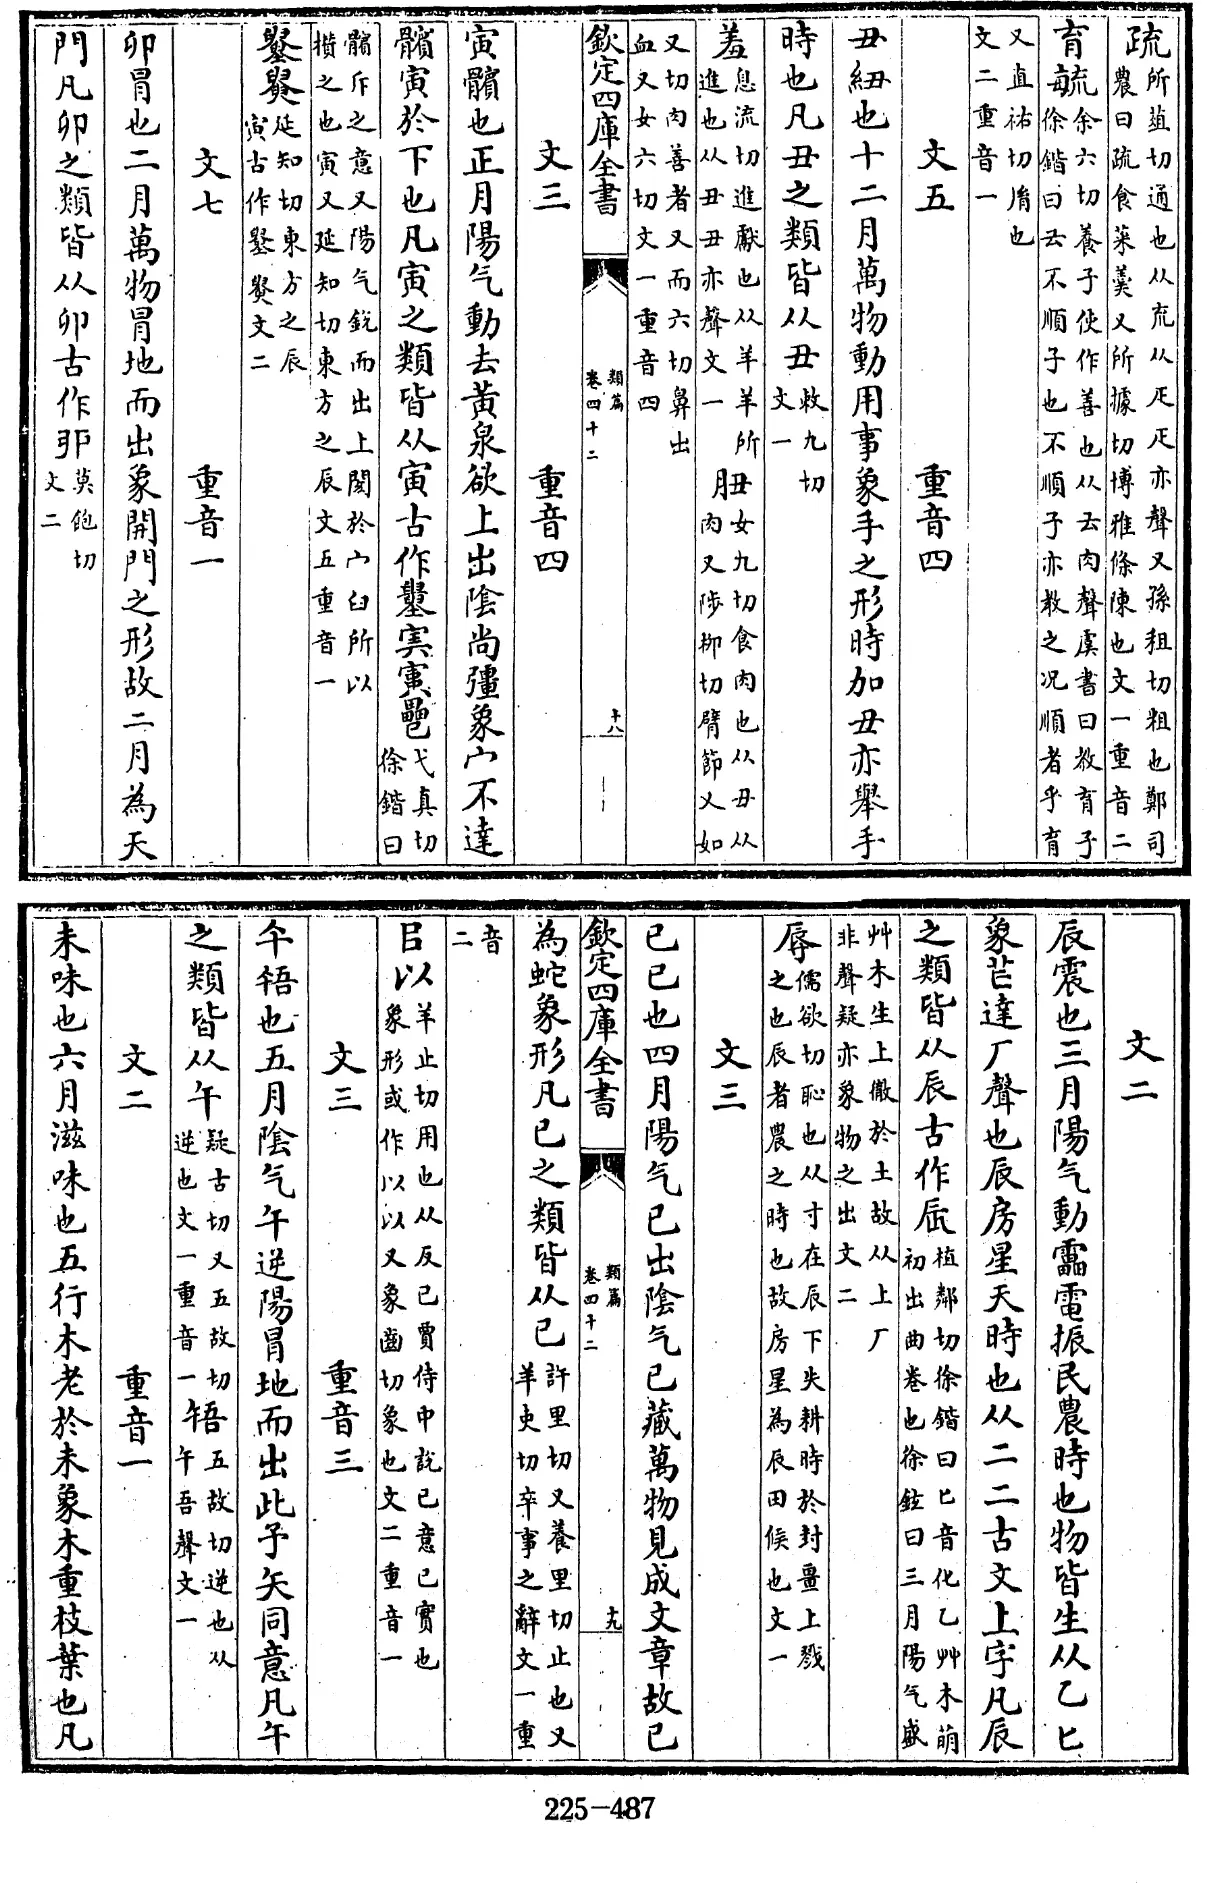 疏所葅切通也从㐬从疋疋亦聲又孫租切粗也鄭司農曰疏食菜羹又所據切博雅條陳也文一重音二
育毓余六切養子使作善也从𠫓肉聲虞書曰教育子徐鍇曰𠫓不順子也不順子亦教之况順者乎育
又直祐切胤也文二重音一
文五 重音四
丑紐也十二月萬物動用事象手之形時加丑亦舉手
時也凡丑之類皆从丑敕九切文一
羞息流切進獻也从羊羊所進也从丑丑亦聲文一 䏔女九切食肉也从丑从肉又陟柳切臂節又如
又切肉善者又而六切鼻出血又女六切文一重音四
欽定四庫全書 類篇 卷四十二 十八
文三 重音四
寅髕也正月陽气動去黃泉欲上出陰尚彊象宀不達
髕寅於下也凡寅之類皆从寅古作𡔈寅弋真切徐鍇曰
髕斥之意又陽气銳而出上閡於宀臼所以擯之也寅又延知切東方之辰文五重音一
延知切東方之辰寅古作文二
文七 重音一
卯冒也二月萬物冒地而出象開門之形故二月為天
門凡卯之類皆从卯古作戼莫飽切文二
文二
辰震也三月陽气動靁電振民農時也物皆生从乙匕
象芒達厂聲也辰房星天時也从二二古文上字凡辰
之類皆从辰古作𠨷植鄰切徐鍇曰匕音化乙艸木萌初出曲卷也徐鉉曰三月陽气盛
艸木生上徹於土故从上厂非聲疑亦象物之出文二
辱儒欲切恥也从寸在辰下失耕時於封畺上戮之也辰者農之時也故房星為辰田候也文一
文三
巳已也四月陽气已出陰气已藏萬物見成文章故巳
欽定四庫全書 類篇 卷四十二 十九
為蛇象形凡巳之類皆从巳許里切又養里切止也又羊吏切卒事之辭文一重
音二
㠯以羊止切用也从反巳賈侍中說已意已實也象形或作以以又象齒切象也文二重音一
文三 重音三
午啎也五月陰气午逆陽冒地而出此予矢同意凡午
之類皆从午疑古切又五故切逆也文一重音一 啎五故切逆也从午吾聲文一
文二 重音一
未味也六月滋味也五行木老於未象木重枝葉也凡
225-487